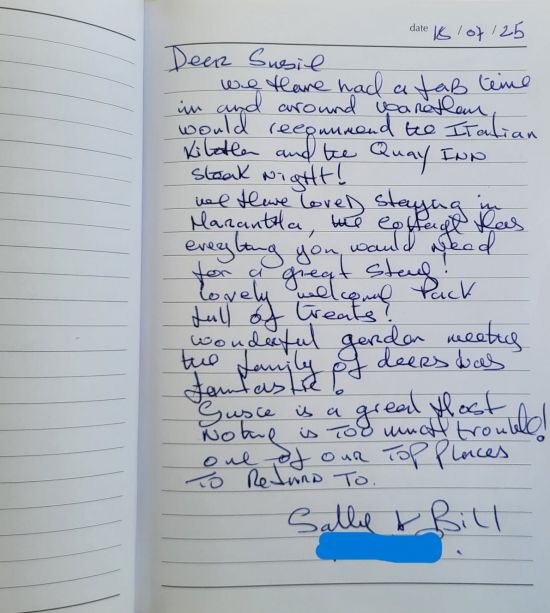 date 18/07/25
Deer Susie
we Have had a fab time
in and around Wareham,
would recommend the Italian
Kitchen and the Quay INN
Steak Night!
we Have loved staying in
Marantha, the cottage Has
everything you would Need
for a great stay!
Lovely welcome Pack
full of treats!
wonderful garden meeting
the family of deers was
fantastic!
Susie is a great Host
Nothing is Too much trouble!
one of our Top Places
To Return To.
Sallie & Bill